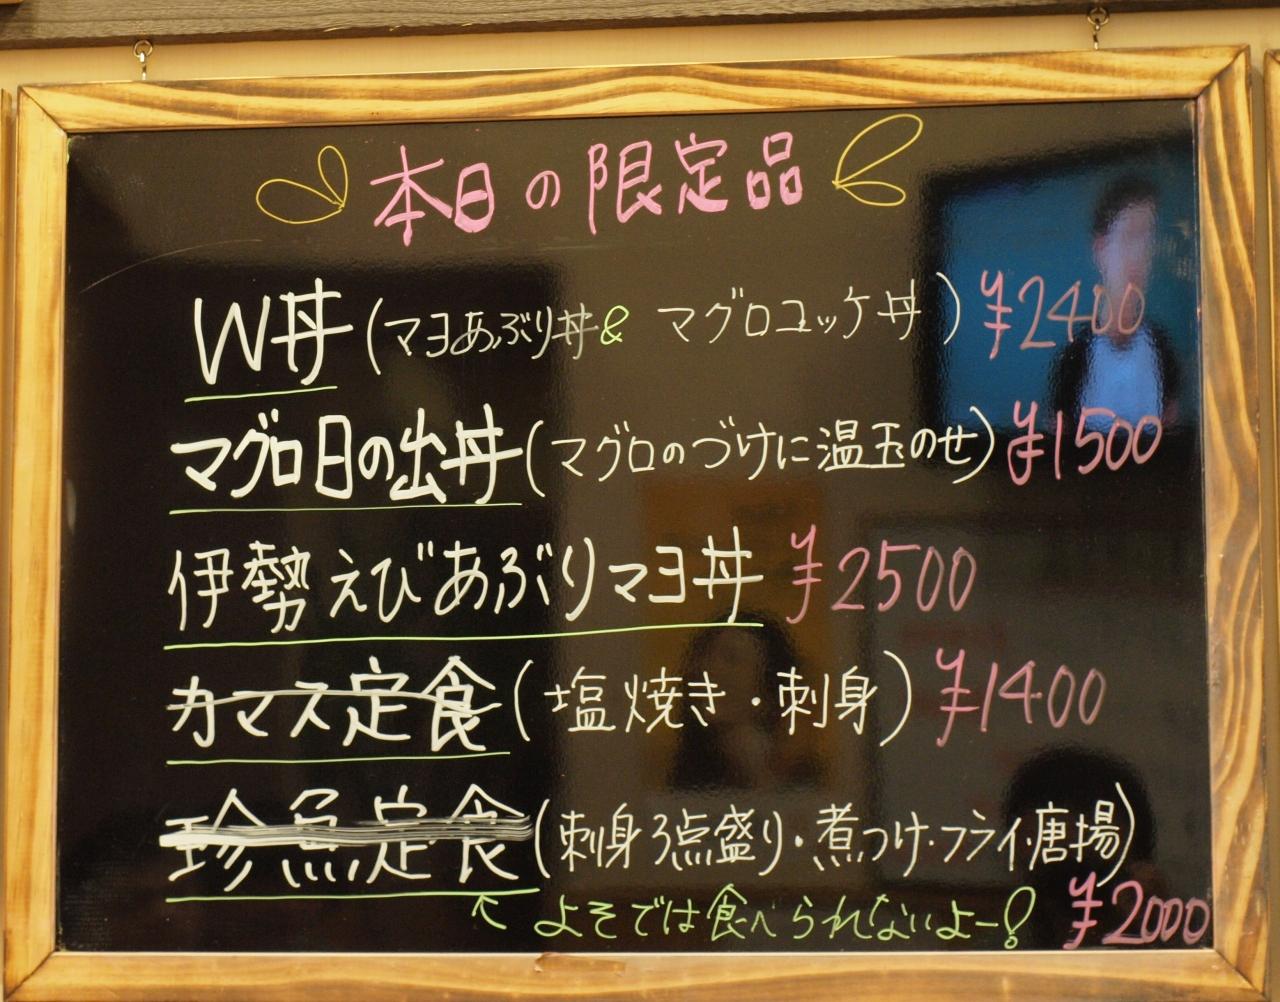 本日の限定品
W丼(マヨあぶり丼& マグロユッケ丼) ¥2400
マグロ日の出丼(マグロのづけに温玉のせ) ¥1500
伊勢えびあぶりマヨ丼 ¥2500
カマス定食(塩焼き・刺身) ¥1400
珍魚定食(刺身3点盛り・煮つけ・フライ・唐揚)
↖よそでは食べられないよー! ¥2000